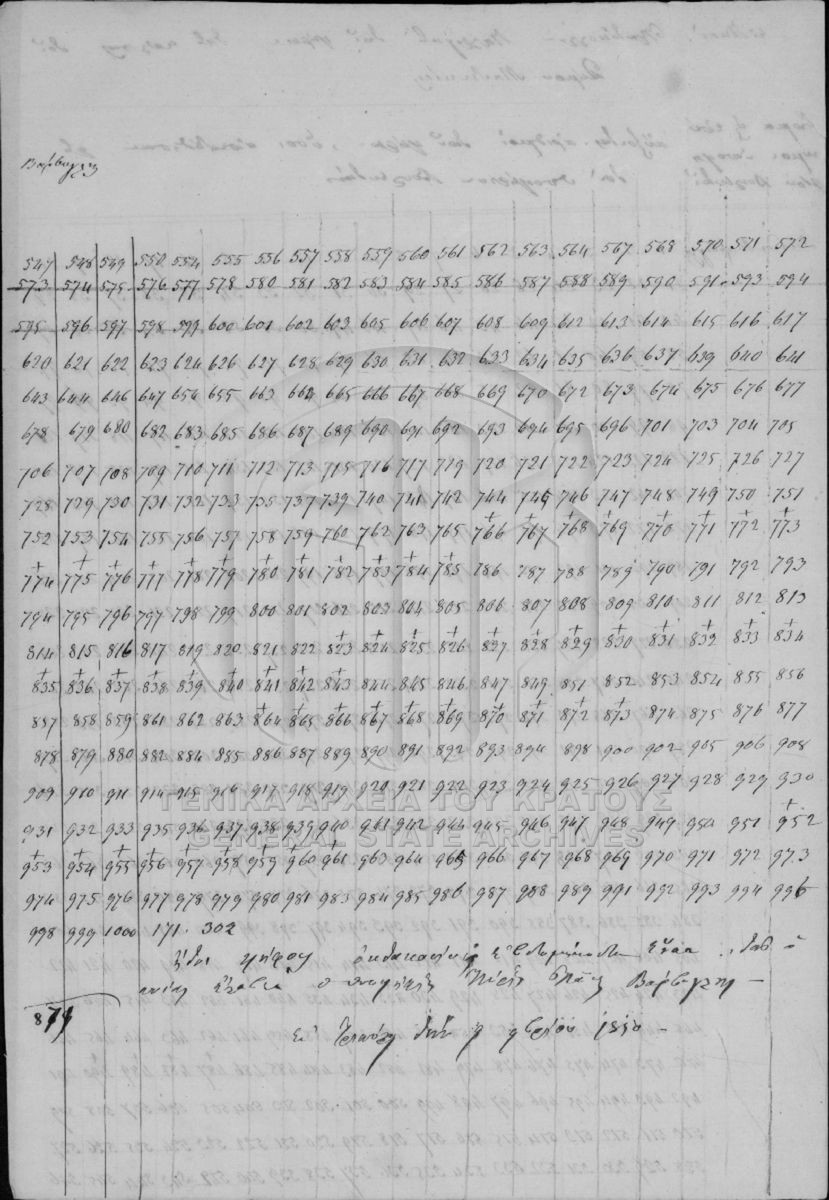 547 548 549 550 554 555 556 557 558 559 560 561 562 563 564 567 568 570 571 572
573 574 575 576 577 578 580 581 582 583 584 585 586 587 588 589 590 591 593 594
595 596 597 598 599 600 601 602 603 605 606 607 608 609 612 613 614 615 616 617
620 621 622 623 624 626 627 628 629 630 631 632 633 634 635 636 637 639 640 641
643 644 646 647 654 655 663 664 665 666 667 668 669 670 672 673 674 675 676 677
678 679 680 682 683 685 686 687 689 690 691 692 693 694 695 696 701 703 704 705
706 707 708 709 710 711 712 713 715 716 717 719 720 721 722 723 724 725 726 727
728 729 730 731 732 733 735 737 739 740 741 742 744 745 746 747 748 749 750 751
752 753 754 755 756 757 758 759 760 762 763 765 766 767 768 769 770 771 772 773
774 775 776 777 778 779 780 781 782 783 784 785 786 787 788 789 790 791 792 793
794 795 796 797 798 799 800 801 802 803 804 805 806 807 808 809 810 811 812 813
814 815 816 817 819 820 821 822 823 824 825 826 827 828 829 830 831 832 833 834
835 836 837 838 839 840 841 842 843 844 845 846 847 849 851 852 853 854 855 856
857 858 859 861 862 863 864 865 866 867 868 869 870 871 872 873 874 875 876 877
878 879 880 882 884 885 886 887 889 890 891 892 893 894 898 900 902 905 906 908
909 910 911 914 915 916 917 918 919 920 921 922 923 924 925 926 927 928 929 930
931 932 933 935 936 937 938 939 940 941 942 944 945 946 947 948 949 950 951 952
953 954 955 956 957 958 959 960 961 963 964 965 966 967 968 969 970 971 972 973
974 975 976 977 978 979 980 981 983 984 985 986 987 988 989 991 992 993 994 996
998 999 1000 171 302
ΓΕΝΙΚΑ ΑΡΧΕΙΑ ΤΟΥ ΚΡΑΤΟΥΣ
GENERAL STATE ARCHIVES
871